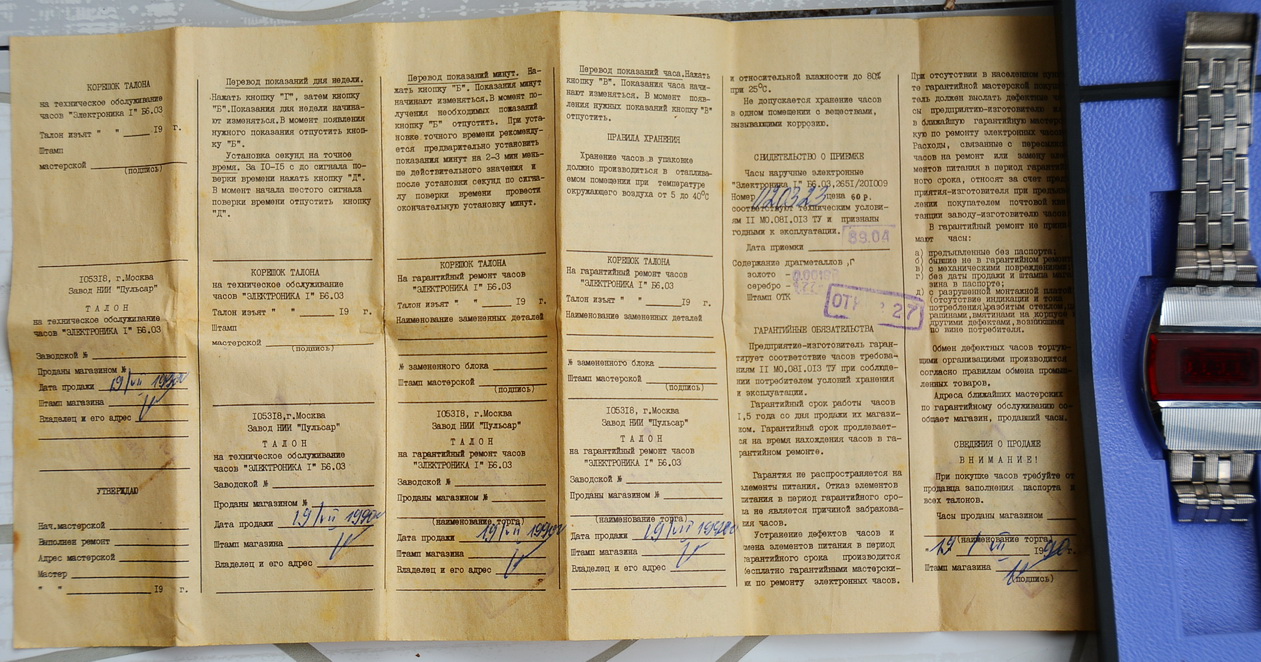 КОРЕШОК ТАЛОНА
на техническое обслуживание
часов "Электроника I" Б6.03
Талон изъят " " 19 г.
Штамп
мастерской
(подпись)
I05318, г.Москва
Завод НИИ "Пульсар"
ТАЛОН
на техническое обслуживание
часов "ЭЛЕКТРОНИКА I" Б6.03
Заводской №
Проданы магазином №
Дата продажи 19/VII 1990
Штамп магазина
Владелец и его адрес
УТВЕРЖДАЮ
Нач.мастерской
Выполнен ремонт
Адрес мастерской
Мастер
" " 19 г.
Перевод показаний дня недели.
Нажать кнопку "Г", затем кнопку
"Б".Показания дня недели начина-
ют изменяться.В момент появления
нужного показания отпустить кноп-
ку "Б".
Установка секунд на точное
время. За IO-I5 с до сигнала по-
верки времени нажать кнопку "Д".
В момент начала шестого сигнала
поверки времени отпустить кнопку
"Д".
КОРЕШОК ТАЛОНА
на техническое обслуживание
часов "ЭЛЕКТРОНИКА I" Б6.03
Талон изъят " " 19 г.
Штамп
мастерской
(подпись)
I05318,г.Москва
Завод НИИ "Пульсар"
ТАЛОН
на техническое обслуживание
часов "ЭЛЕКТРОНИКА I" Б6.03
Заводской №
Проданы магазином №
Дата продажи 19/VII 1990
Штамп магазина
Владелец и его адрес
Перевод показаний минут. На-
жать кнопку "Б". Показания минут
начинают изменяться.В момент по-
лучения необходимых показаний
кнопку "Б" отпустить. При уста-
новке точного времени рекоменду-
ется предварительно установить
показания минут на 2-3 мин мень-
ше действительного значения и
после установки секунд по сигна-
лу поверки времени провести
окончательную установку минут.
КОРЕШОК ТАЛОНА
На гарантийный ремонт часов
"ЭЛЕКТРОНИКА I" Б6.03
Талон изъят " " 19 г.
Наименование замененных деталей
№ замененного блока
Штамп мастерской
(подпись)
I05318, г.Москва
Завод НИИ "Пульсар"
ТАЛОН
на гарантийный ремонт часов
"ЭЛЕКТРОНИКА I" Б6.03
Заводской №
Проданы магазином №
(наименование торга)
Дата продажи 19/VII 1990
Штамп магазина
Владелец и его адрес
Перевод показаний часа.Нажать
кнопку "В". Показания часа начи-
нают изменяться. В момент появ-
ления нужных показаний кнопку "В"
отпустить.
ПРАВИЛА ХРАНЕНИЯ
Хранение часов в упаковке
должно производиться в отаплива-
емом помещении при температуре
окружающего воздуха от 5 до 40°С
КОРЕШОК ТАЛОНА
на гарантийный ремонт часов
"ЭЛЕКТРОНИКА I" Б6.03
Талон изъят " " 19 г.
Наименование замененных деталей
№ замененного блока
Штамп мастерской
(подпись)
I05318, г.Москва
Завод НИИ "Пульсар"
ТАЛОН
на гарантийный ремонт часов
"ЭЛЕКТРОНИКА I" Б6.03
Заводской №
Проданы магазином №
(наименование торга)
Дата продажи 19/VII 1990
Штамп магазина
Владелец и его адрес
и относительной влажности до 80%
при 25°С.
Не допускается хранение часов
в одном помещении с веществами,
вызывающими коррозию.
СВИДЕТЕЛЬСТВО О ПРИЕМКЕ
Часы наручные электронные
"Электроника I" Б6.03.265I/20I009
Номер 020323 цена 60 р.
соответствуют техническим услови-
ям II МО.08I.0I3 ТУ и признаны
годными к эксплуатации.
Дата приемки 89.04
Содержание драгметаллов ,г
золото -
серебро -
Штамп ОТК ОТК 27
ГАРАНТИЙНЫЕ ОБЯЗАТЕЛЬСТВА
Предприятие-изготовитель гаран-
тирует соответствие часов требова-
ниям II МО.08I.0I3 ТУ при соблюде-
нии потребителем условий хранения
и эксплуатации.
Гарантийный срок работы часов
I,5 года со дня продажи их магази-
ном. Гарантийный срок продлевает-
ся на время нахождения часов в га-
рантийном ремонте.
Гарантия не распространяется на
элементы питания. Отказ элементов
питания в период гарантийного сро-
ка не является причиной забракова-
ния часов.
Устранение дефектов часов и
замена элементов питания в период
гарантийного срока производится
бесплатно гарантийными мастерски-
ми по ремонту электронных часов.
При отсутствии в населенном
те гарантийной мастерской
тель должен выслать дефектные
сы предприятию-изготовителю
в ближайшую гарантийную
кую по ремонту электронных часов
Расходы, связанные с пересылкой
часов на ремонт или замену
ментов питания в период гарантий-
ного срока, относят за счет
приятия-изготовителя при предъяв-
лении покупателем почтовой
танции заводу-изготовителю часов.
В гарантийный ремонт не прини-
мают часы:
а) предъявленные без паспорта;
б) бывшие не в гарантийном ремонте
в) с механическими повреждениями;
г) без даты продажи и штампа мага-
зина в паспорте;
д) с разрушенной монтажной платой
(отсутствие индикации и
потребления)разбитым стеклом,
рапинами,вмятинами на корпусе
другими дефектами,возникшими
по вине потребителя.
Обмен дефектных часов торгую-
щими организациями производится
согласно правилам обмена промыш-
ленных товаров.
Адреса ближайших мастерских
по гарантийному обслуживанию со-
общает магазин, продавший часы.
СВЕДЕНИЯ О ПРОДАЖЕ
ВНИМАНИЕ!
При покупке часов требуйте от
продавца заполнения паспорта и
всех талонов.
Часы проданы магазином
(наименование торга)
19 / VII 1990 г.
Штамп магазина
(подпись)